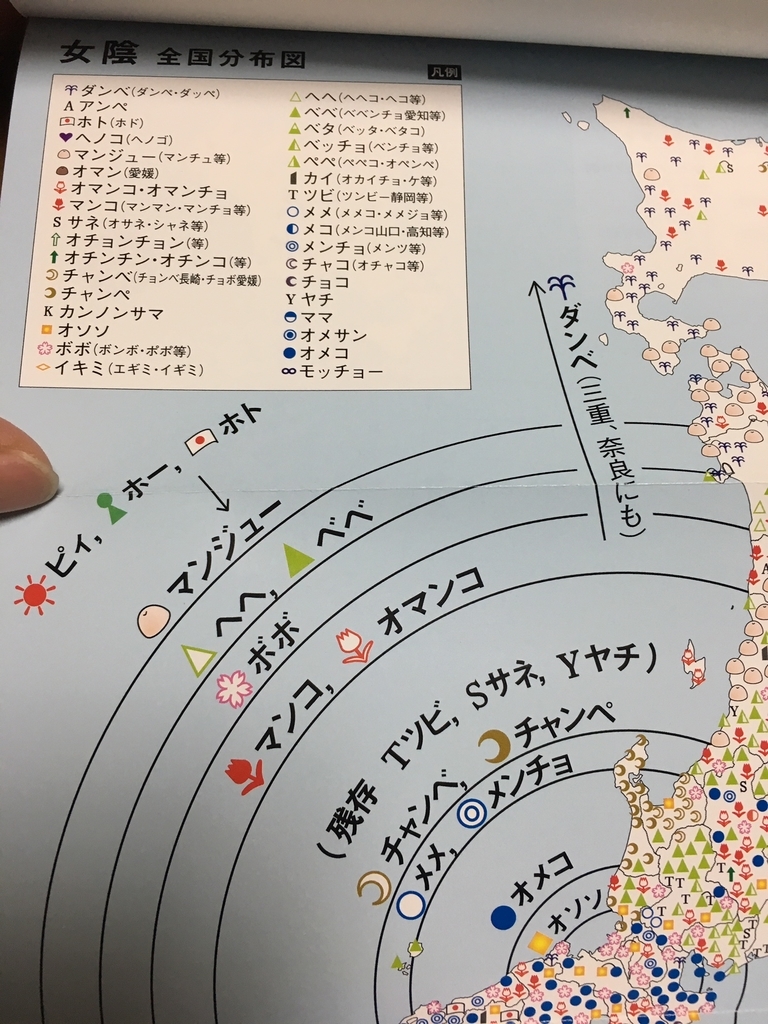 女陰 全国分布図
凡例
ダンベ(ダンペ・ダッペ)
A アンペ
ホト(ホド)
ヘノコ(ヘノゴ)
マンジュー(マンチュ等)
オマン(愛媛)
オマンコ・オマンチョ
マンコ(マンマン・マンチョ等)
S サネ(オサネ・シャネ等)
オチョンチョン(等)
オチンチン・オチンコ(等)
チャンベ(チョンベ長崎・チョボ愛媛)
チャンペ
K カンノンサマ
オソソ
ボボ(ボンボ・ポポ等)
イキミ(エギミ・イギミ)
ヘヘ(ヘヘコ・ヘコ等)
ベベ(ベベンチョ愛知等)
ベタ(ベッタ・ベタコ)
ベッチョ(ベンチョ等)
ペペ(ペペコ・オペンペ)
カイ(オカイチョ・ケ等)
T ツビ(ツンビー静岡等)
メメ(メメコ・メメジョ等)
メコ(メンコ山口・高知等)
メンチョ(メンツ等)
チャコ(オチャコ等)
チョコ
Y ヤチ
ママ
オメサン
オメコ
モッチョー
ダンベ(三重、奈良にも)
ピィ, ホー, ホト
マンジュー
ヘヘ, ベベ
ボボ
マンコ, オマンコ
(残存 Tツビ, Sサネ, Yヤチ)
チャンベ, チャンペ
メメ, メンチョ
オメコ
オソソ
S
A
Y
S
T
T T
T
S
T